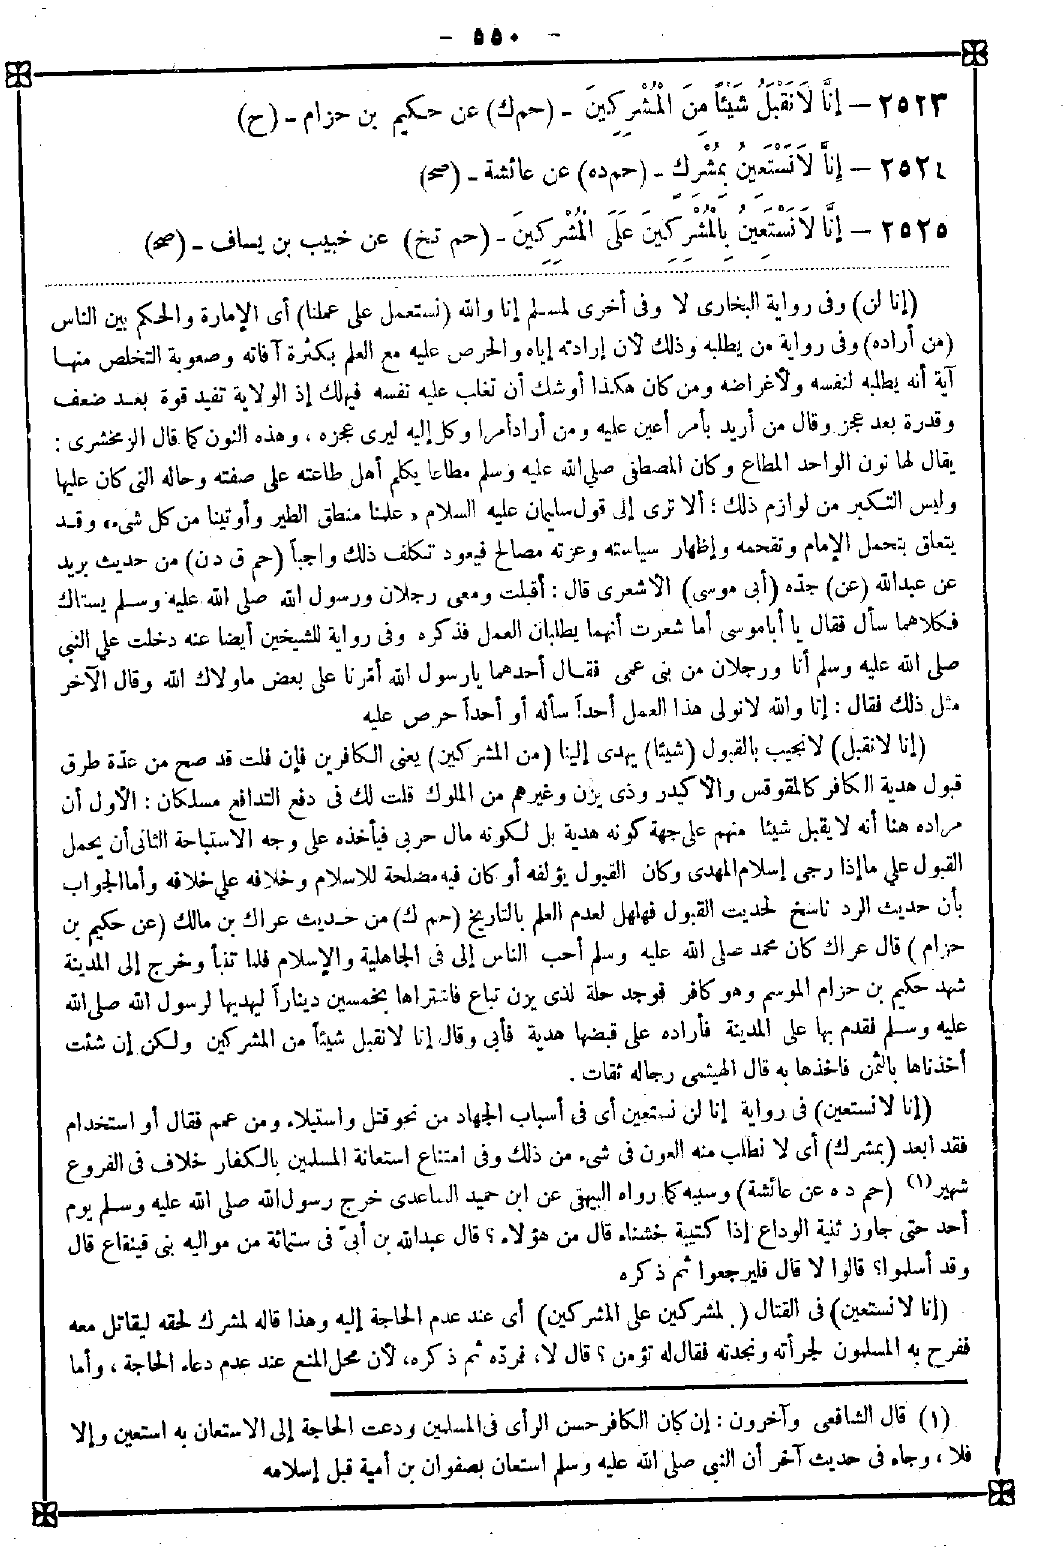 - ٥٥٠ -
٢٥٢٣ – إِنَّا لَا نَقْبَلُ شَيْئاً مِنَ الْمُشْرِكِينَ - (حم ك) عن حكيم بن حزام - (ح)
٢٥٢٤ – إِنَّا لَا نَسْتَعِينُ بِمُشْرِكٍ - (حم ده) عن عائشة - (صح)
٢٥٢٥ – إِنَّا لَا نَسْتَعِينُ بِالْمُشْرِكِينَ عَلَى الْمُشْرِكِينَ - (حم تخ) عن خبيب بن يساف - (صح)
(إنا لن) وفى رواية البخارى لا وفى أخرى لمسلم إنا والله (نستعمل على عملنا) أى الإمارة والحكم بين الناس
(من أراده) وفى رواية من يطلبه وذلك لأن إرادته إياه والحرص عليه مع العلم بكثرة آفاته وصعوبة التخلص منها
آية أنه يطلبه لنفسه ولأغراضه ومن كان هكذا أوشك أن تغلب عليه نفسه فيهلك إذ الولاية تفيد قوة بعد ضعف
وقدرة بعد عجز وقال من أريد بأمر أعين عليه ومن أراد أمرا وكل إليه ليرى عجزه ، وهذه النون كما قال الزمخشرى :
يقال لها نون الواحد المطاع وكان المصطفى صلى الله عليه وسلم مطاعا يكلم أهل طاعته على صفته وحاله التى كان عليها
وليس التكبر من لوازم ذلك ؛ ألا ترى إلى قول سليمان عليه السلام « علمنا منطق الطير وأوتينا من كل شىء » وقد
يتعلق بتحمل الإمام وتفخمه وإظهار سياسته وعزته مصالح فيعود تكلف ذلك واجباً (حم ق دن) من حديث بريد
عن عبدالله (عن) جدّه (أبى موسى) الأشعرى قال : أقبلت ومعى رجلان ورسول الله صلى الله عليه وسلم يستاك
فكلاهما سأل فقال يا أبا موسى أما شعرت أنهما يطلبان العمل فذكره وفى رواية للشيخين أيضا عنه دخلت على النبى
صلى الله عليه وسلم أنا ورجلان من بنى عمى فقال أحدهما يارسول الله أمرنا على بعض ماولاك الله وقال الآخر
مثل ذلك فقال : إنا والله لانولى هذا العمل أحداً سأله أو أحداً حرص عليه
(إنا لانقبل) لانجيب بالقبول (شيئا) يهدى إلينا (من المشركين) يعنى الكافرين فإن قلت قد صح من عدّة طرق
قبول هدية الكافر كالمقوقس والأكيدر وذى يزن وغيرهم من الملوك قلت لك فى دفع التدافع مسلكان : الأول أن
مراده هنا أنه لايقبل شيئا منهم على جهة كونه هدية بل لكونه مال حربى فيأخذه على وجه الاستباحة الثانى أن يحمل
القبول على ما إذا رجى إسلام المهدى وكان القبول يؤلفه أو كان فيه مصلحة للاسلام وخلافه على خلافه وأما الجواب
بأن حديث الرد ناسخ لحديث القبول فهلهل لعدم العلم بالتاريخ (حم ك) من حديث عراك بن مالك (عن حكيم بن
حزام ) قال عراك كان محمد صلى الله عليه وسلم أحب الناس إلى فى الجاهلية والإسلام فلما تنبأ وخرج إلى المدينة
شهد حكيم بن حزام الموسم وهو كافر فوجد حلة لذى يزن تباع فاشتراها بخمسين ديناراً ليهديها لرسول الله صلى الله
عليه وسلم فقدم بها على المدينة فأراده على قبضها هدية فأبى وقال إنا لانقبل شيئاً من المشركين ولكن إن شئت
أخذناها بالثمن فاخذها به قال الهيثمى رجاله ثقات .
(إنا لانستعين) فى رواية إنا لن نستعين أى فى أسباب الجهاد من نحو قتل واستيلاء ومن عمم فقال أو استخدام
فقد ابعد (بمشرك) أى لا نطلب منه العون فى شىء من ذلك وفى امتناع استعانة المسلمين بالكفار خلاف فى الفروع
شهير (١) (حم د ه عن عائشة) وسببه كما رواه البيهقى عن ابن حميد الساعدى خرج رسول الله صلى الله عليه وسلم يوم
أحد حتى جاوز ثنية الوداع إذا كتيبة خشناء قال من هؤلاء ؟ قال عبدالله بن أبىّ فى ستمائة من مواليه بنى قينقاع قال
وقد أسلموا؟ قالوا لا قال فليرجعوا ثم ذكره
(إنا لانستعين) فى القتال ( لمشركين على المشركين) أى عند عدم الحاجة إليه وهذا قاله لمشرك لحقه ليقاتل معه
ففرح به المسلمون لجرأته ونجدته فقال له تؤمن ؟ قال لا، فردّه ثم ذكره، لأن محل المنع عند عدم دعاء الحاجة ، وأما
(١) قال الشافعى وآخرون : إن كان الكافر حسن الرأى فى المسلمين ودعت الحاجة إلى الاستعان به استعين وإلا
فلا ، وجاء فى حديث آخر أن النبى صلى الله عليه وسلم استعان بصفوان بن أمية قبل إسلامه